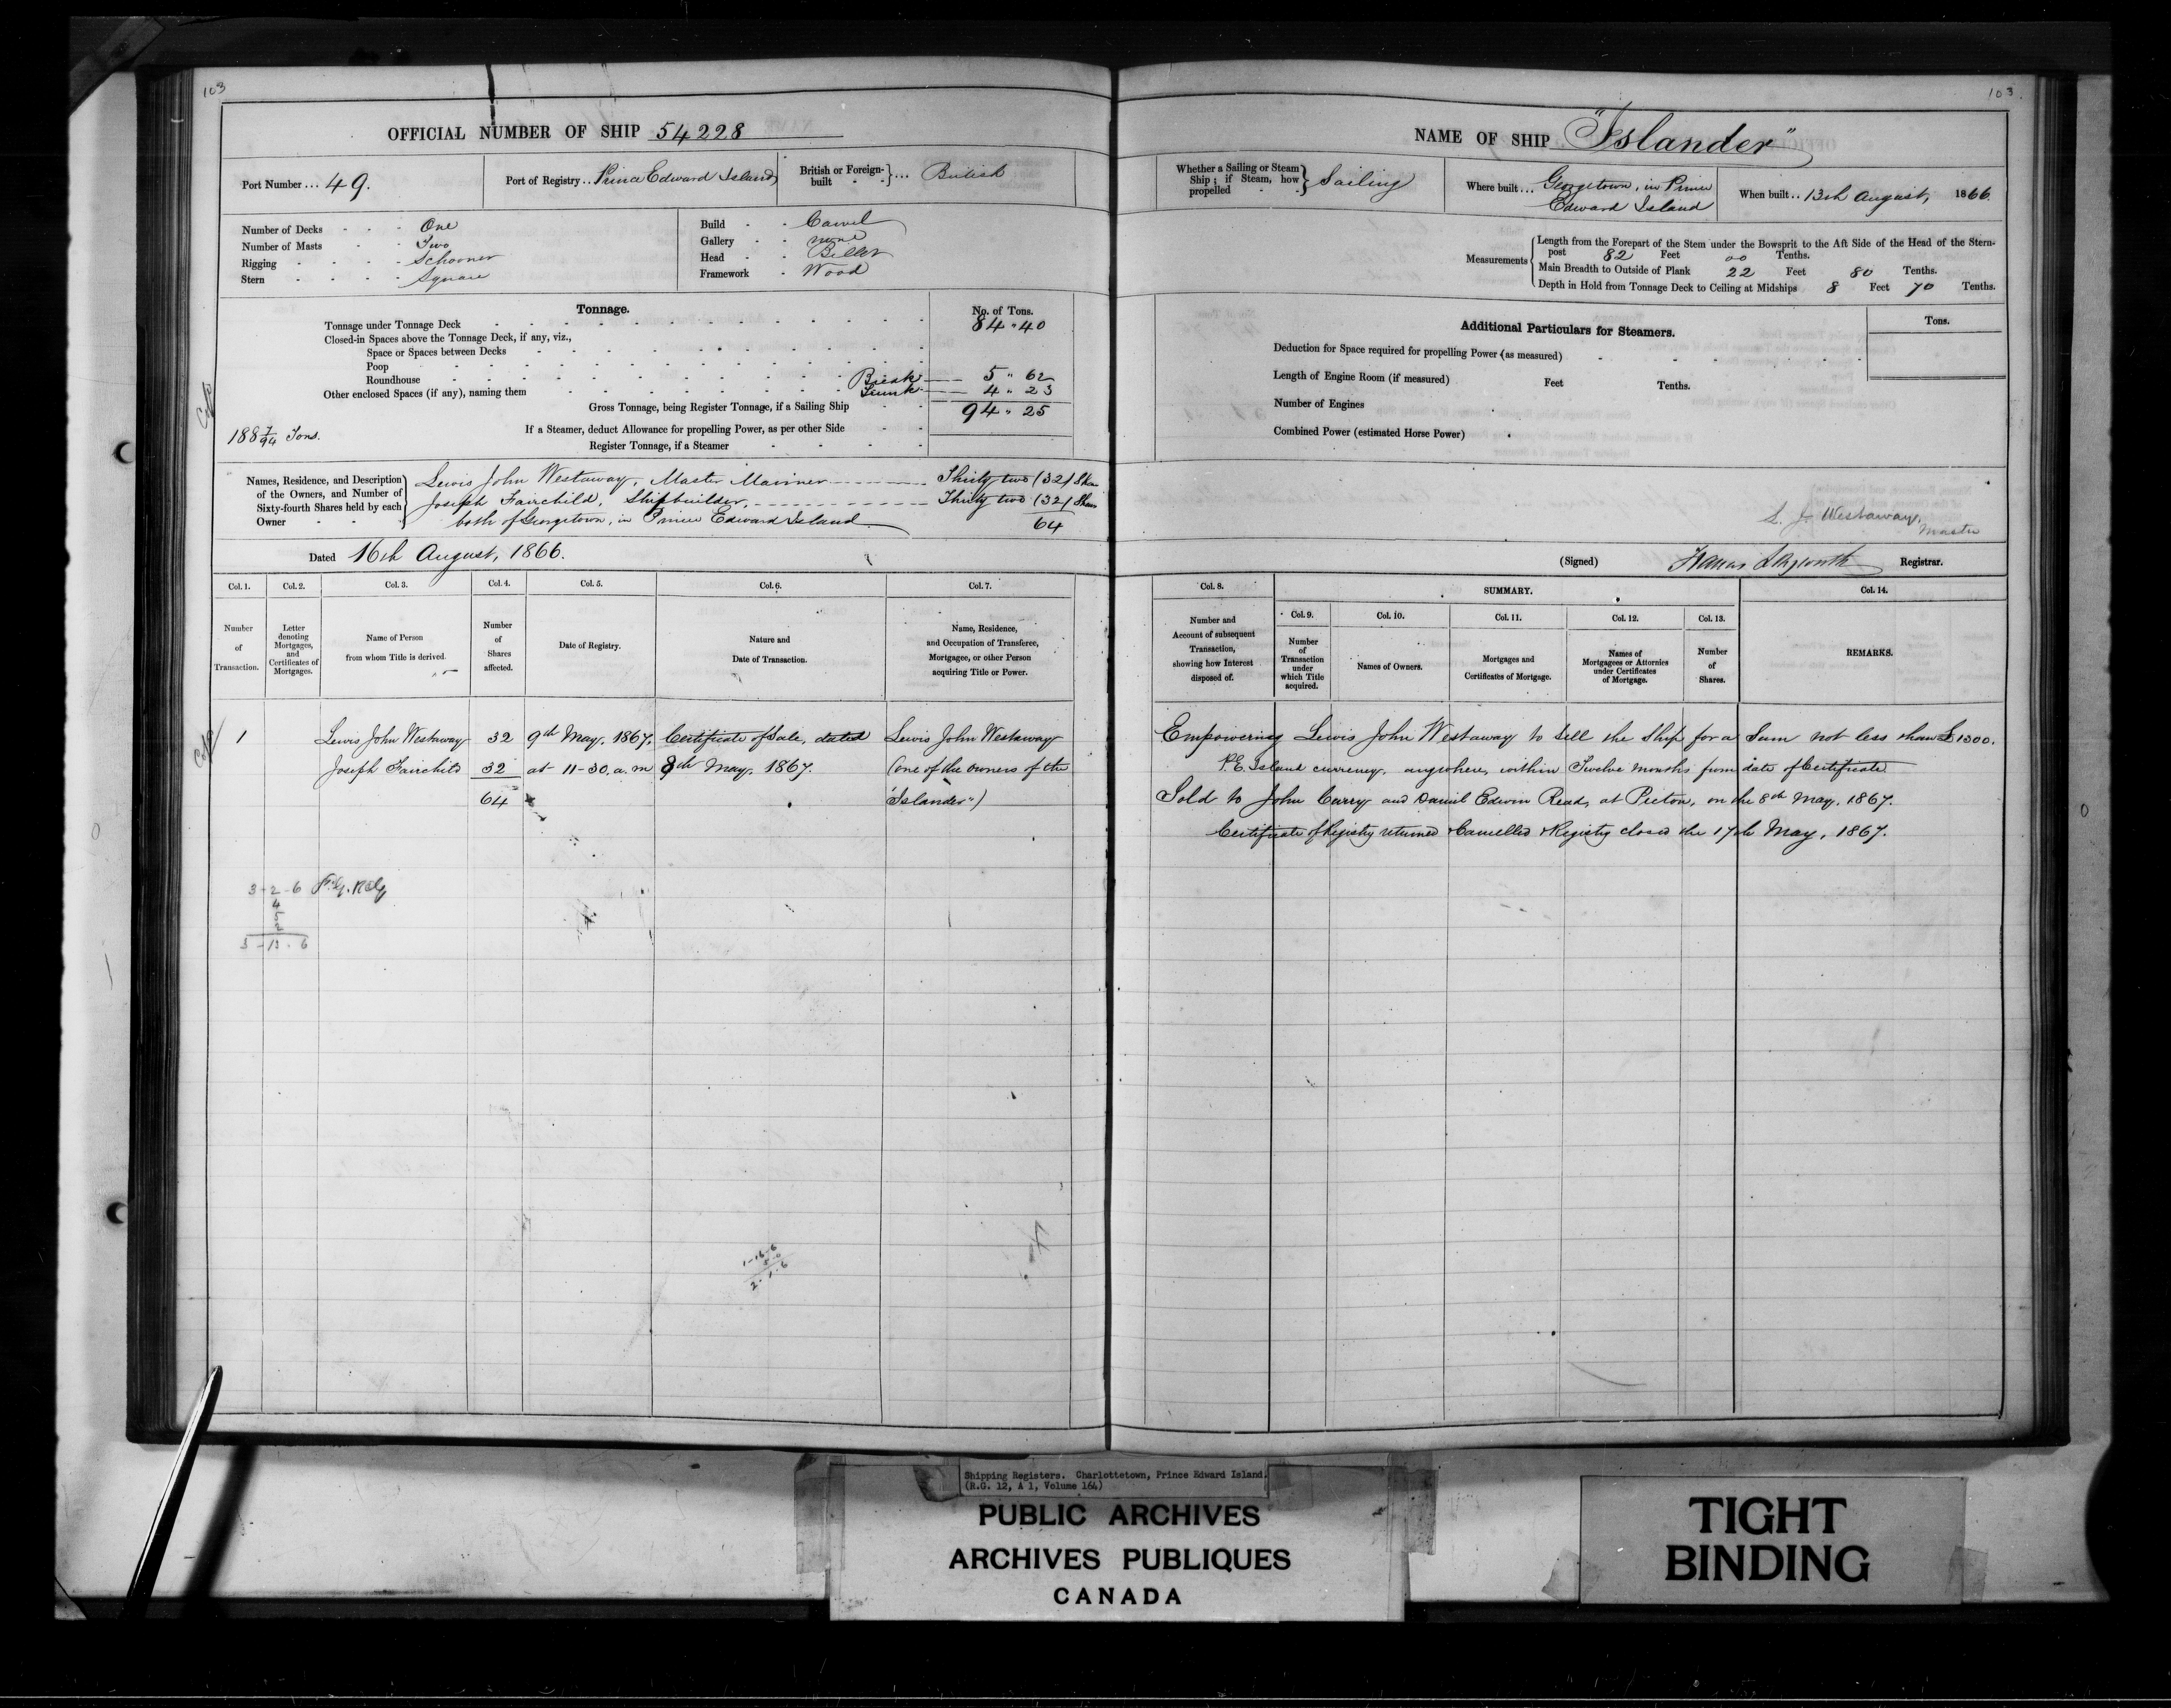 103
OFFICIAL NUMBER OF SHIP 54228
Port Number ... 49.
Port of Registry .. Prince Edward Island
British or Foreign-built } ... British
Number of Decks - - - One
Number of Masts - - Two
Rigging - - - - Schooner
Stern - - - - Square
Build - - Carvel
Gallery - - none
Head - - Billet
Framework - Wood
Tonnage.
No. of Tons.
Tonnage under Tonnage Deck 84 " 40
Closed-in Spaces above the Tonnage Deck, if any, viz.,
Space or Spaces between Decks
Poop
Roundhouse Break 5 " 62
Other enclosed Spaces (if any), naming them Trunk 4 " 23
Gross Tonnage, being Register Tonnage, if a Sailing Ship 94 " 25
188 7/94 Tons.
If a Steamer, deduct Allowance for propelling Power, as per other Side
Register Tonnage, if a Steamer
Names, Residence, and Description of the Owners, and Number of Sixty-fourth Shares held by each Owner
Lewis John Westaway, Master Mariner ------ Thirty two (32) Shares
Joseph Fairchild, Shipbuilder, ------ Thirty two (32) Shares
both of Georgetown, in Prince Edward Island 64
Dated 16th August, 1866.
Col. 1. Col. 2. Col. 3. Col. 4. Col. 5. Col. 6. Col. 7.
Number of Transaction.
Letter denoting Mortgages, and Certificates of Mortgages.
Name of Person from whom Title is derived.
Number of Shares affected.
Date of Registry.
Nature and Date of Transaction.
Name, Residence, and Occupation of Transferee, Mortgagee, or other Person acquiring Title or Power.
1 Lewis John Westaway 32 9th May, 1867. Certificate of Sale, dated Lewis John Westaway
Joseph Fairchild 32 at 11-30. a.m 8th May, 1867. (one of the owners of the
64 "Islander")
3-2-6
3-13-6
1-16-6
2.1.6
103.
NAME OF SHIP "Islander"
Whether a Sailing or Steam Ship; if Steam, how propelled } Sailing
Where built ... Georgetown, in Prince Edward Island
When built .. 13th August, 1866.
Measurements
Length from the Forepart of the Stem under the Bowsprit to the Aft Side of the Head of the Stern-
post 82 Feet 00 Tenths.
Main Breadth to Outside of Plank 22 Feet 80 Tenths.
Depth in Hold from Tonnage Deck to Ceiling at Midships 8 Feet 70 Tenths.
Additional Particulars for Steamers.
Tons.
Deduction for Space required for propelling Power (as measured)
Length of Engine Room (if measured) Feet Tenths.
Number of Engines
Combined Power (estimated Horse Power)
L. J. Westaway,
Master
(Signed) Francis Longworth Registrar.
Col. 8. SUMMARY. Col. 14.
Col. 9. Col. 10. Col. 11. Col. 12. Col. 13.
Number and Account of subsequent Transaction, showing how Interest disposed of.
Number of Transaction under which Title acquired.
Names of Owners.
Mortgages and Certificates of Mortgage.
Names of Mortgagees or Attornies under Certificates of Mortgage.
Number of Shares.
REMARKS.
Empowering Lewis John Westaway to sell the Ship for a Sum not less than £1300.
P.E. Island currency, anywhere, within Twelve months from date of Certificate
Sold to John Carry and Daniel Edwin Read, at Pictou, on the 8th May, 1867.
Certificate of Registry returned Cancelled & Registry closed the 17th May, 1867.
Shipping Registers. Charlottetown, Prince Edward Island.
(R.G. 12, A 1, Volume 164)
PUBLIC ARCHIVES
ARCHIVES PUBLIQUES
CANADA
TIGHT
BINDING